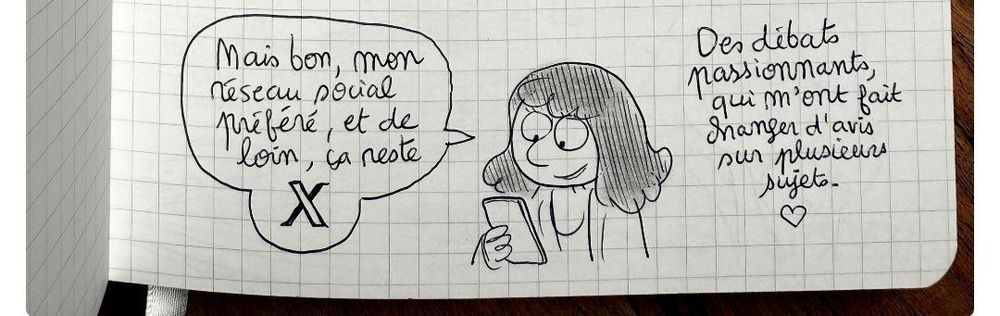 Mais bon, mon
réseau social
préféré, et de
loin, ça reste
X
Des débats
passionnants,
qui m'ont fait
changer d'avis
sur plusieurs
sujets.